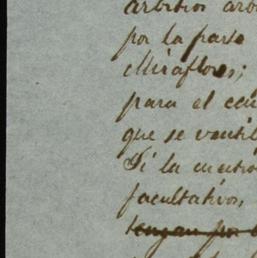 arbitrios arb
por la parte
Miraflores;
para el cen
que se ventil
Si la cuestio
facultativos,
tengan por